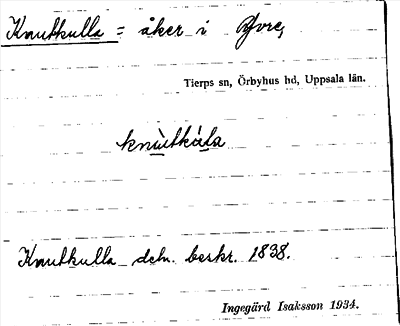 Knutkulla = åker i Yvre,
Tierps sn, Örbyhus hd, Uppsala län.
knùtkàla
Knutkulla dehn. beskr. 1838.
Ingegärd Isaksson 1934.